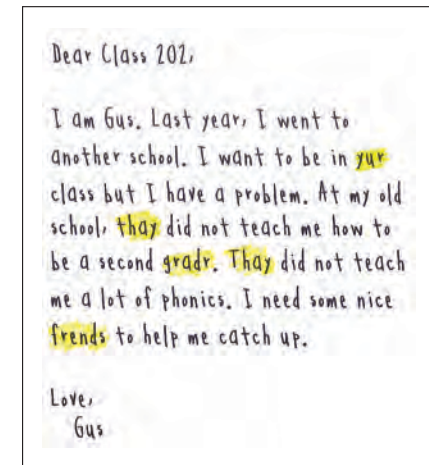 Dear Class 202,
I am Gus. Last year, I went to
another school. I want to be in yur
class but I have a problem. At my old
school, thay did not teach me how to
be a second gradr. Thay did not teach
me a lot of phonics. I need some nice
frends to help me catch up.
Love,
Gus